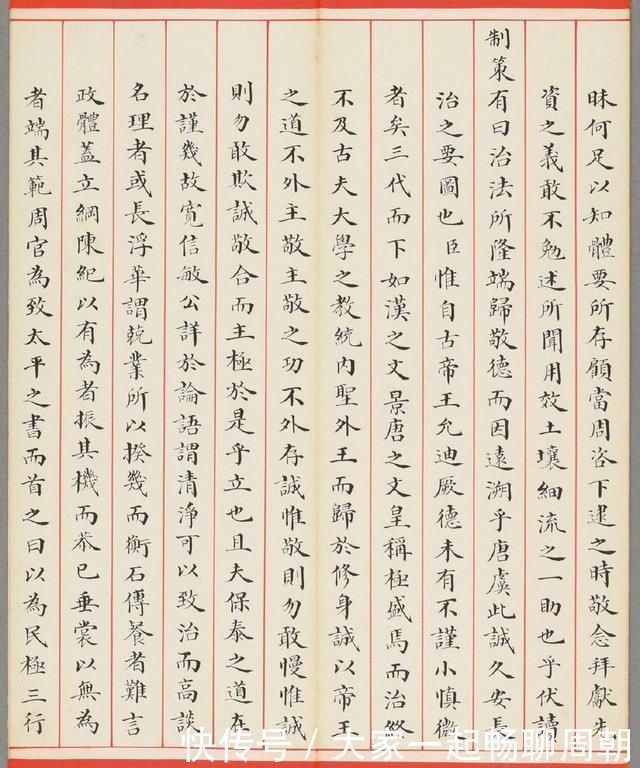 昧何足以知體要所存顧當周咨下逮之時敬念拜獻先
資之義敢不勉述所聞用效土壤細流之一助也乎伏讀
制策有曰治法所隆端歸敬德而因遠溯乎唐虞此誠久安長
治之要圖也臣惟自古帝王允迪厥德未有不謹小慎微
者矣三代而下如漢之文景唐之文皇稱極盛焉而治終
不及古夫大學之教統內聖外王而歸於修身誠以帝王
之道不外主敬主敬之功不外存誠惟敬則勿敢慢惟誠
則勿敢欺誠敬合而主極於是乎立也且夫保泰之道在
於謹幾故寬信敏公詳於論語謂清淨可以致治而高談
名理者或長浮華謂兢業所以揆幾而衡石傳餐者難言
政體蓋立綱陳紀以有為者振其機而恭己垂裳以無為
者端其範周官為致太平之書而首之曰以為民極三行
快传号/大家一起畅聊周朝